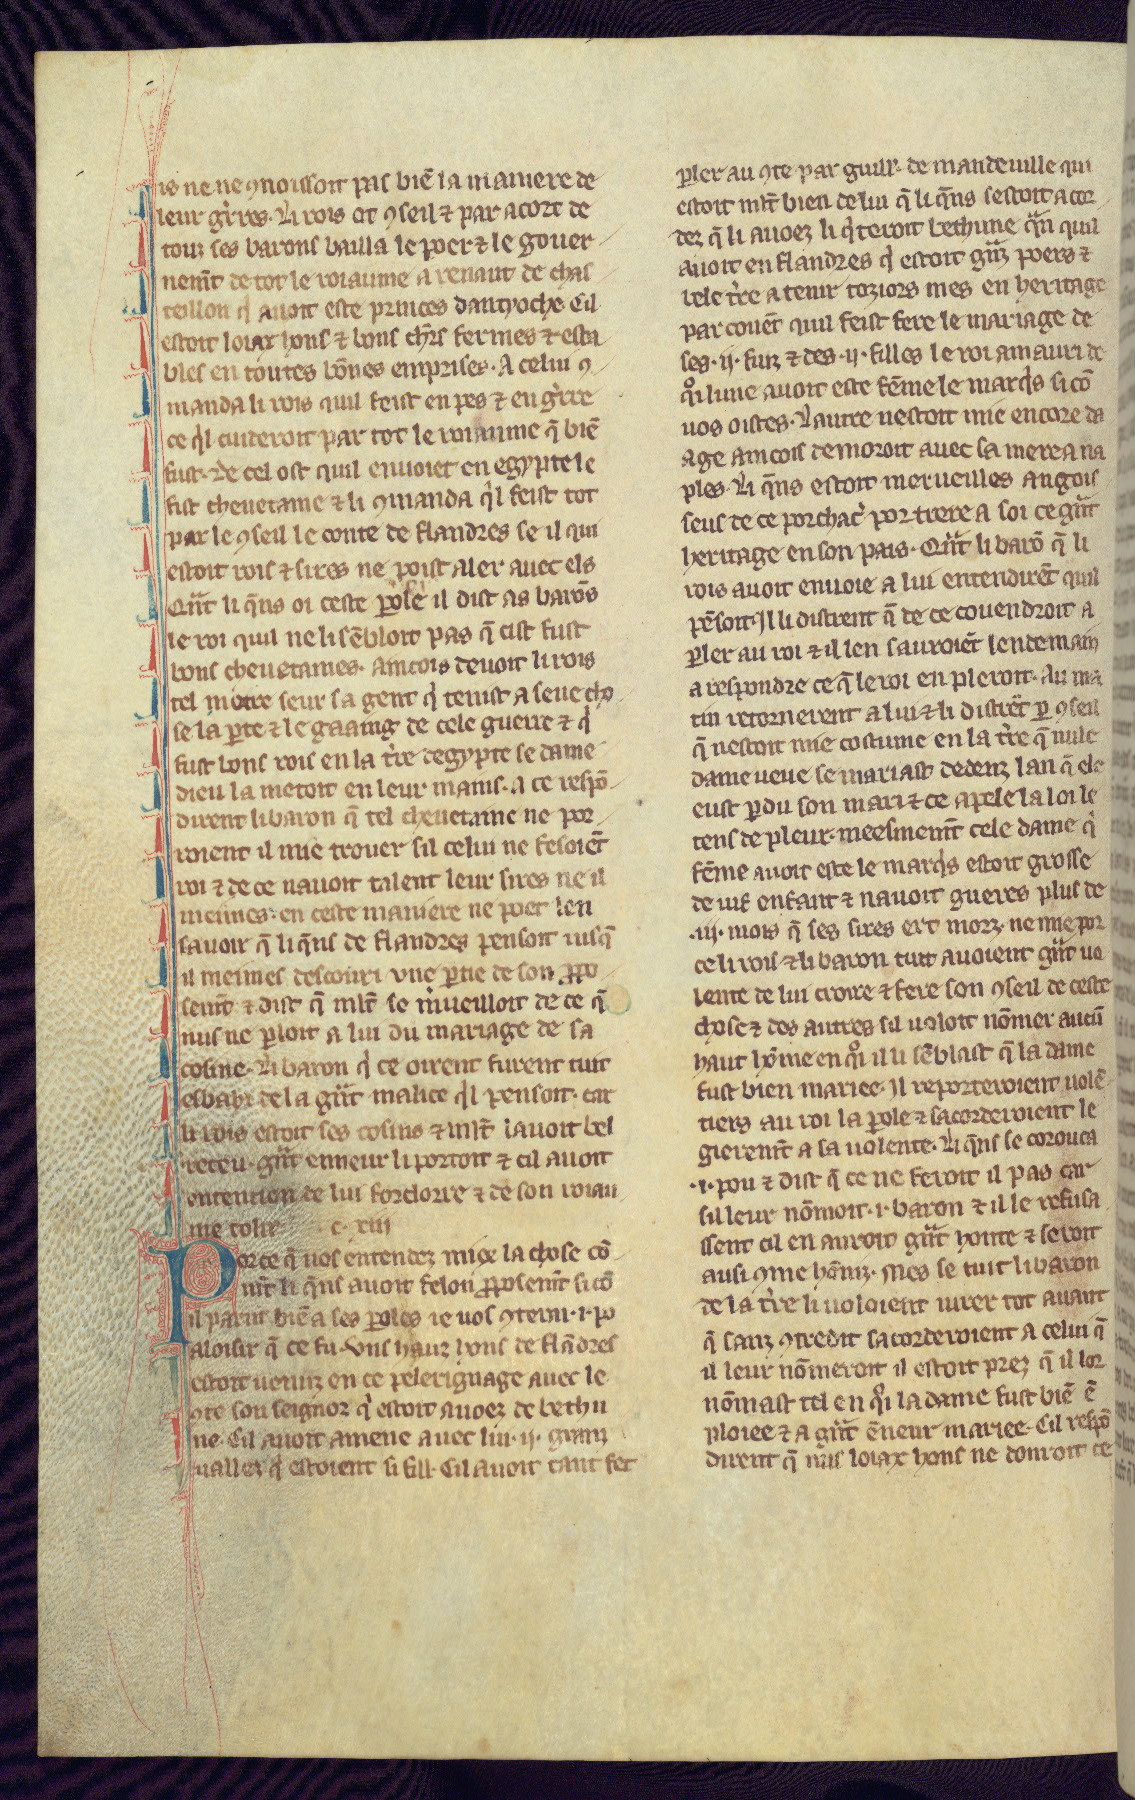 is ne ne ꝯnoissoit pas biē la maniere de
leur gr̄res. Li rois ot ꝯseil ⁊ par acort de
touz ses barons bailla le poer ⁊ le gouer
nem̄t de tot le roiaume a renaut de chas
teillon q̇ auoit este princes dantyoche. Cil
estoit loiax hons ⁊ bons chr̄s fermes ⁊ esta
bles en toutes bōnes emprises. A celui ꝯ
manda li rois quil feist en pes ⁊ en gr̄re
ce q̇l cuideroit par tot le roiaume q̄ biē
fust. De cel ost quil enuoiet en egypte le
fist cheuetaine ⁊ li ꝯmanda q̇l feist tot
par le ꝯseil le conte de flandres se il qui
estoit rois ⁊ sires ne poist aler auec els
Qūt li q̄ns oi ceste ꝑole il dist as barōs
le roi quil ne li sēbloit pas q̄ cist fust
bons cheuetaines. Aincois deuoit li rois
tel metre seur sa gent q̇ tenist a seue cho
se la ꝑte ⁊ le gaaing de cele guerre ⁊ q̇
fust bons rois en la tr̄re degypte se dame
dieu la metoit en leur mains. A ce respō
dirent li baron q̄ tel cheuetaine ne por
roient il mie trouer sil celui ne fesoiēt
roi ⁊ de ce nauoit talent leur sires ne il
meimes. en ceste maniere ne poet len
sauoir q̄ li q̄ns de flandres pensoit iusq̄
il meimes descouri vne ꝑtie de son ꝓpo
sem̄t ⁊ dist q̄ ml̄t se m̄ueilloit de ce q̄
nus ne ꝑloit a lui du mariage de sa
cosine. Li baron q̇ ce oirent furent tuit
esbahi de la gr̄t malice q̇l pensoit. car
li rois estoit ses cosins ⁊ ml̄t lauoit bel
receu. gr̄t enneur li portoit ⁊ cil auoit
ontention de lui forclorre ⁊ de son roiau
me tolir c. xiii
Porce q̄ uos entendez miex la chose cō
mt̄ li q̄ns auoit felon ꝓposem̄t si cō
il parut biē a ses ꝑoles ie uos ꝯterai .i. po
aloisir q̄ ce fu. Vns hauz hons de flādres
estoit uenuz en ce peleriguage auec le
ꝯte son seignor q̇ estoit auoez de bethu
ne. Cil auoit amene auec lui .ii. granz
uallez q̇ estoient si fill. Cil auoit tant fet
ꝑler au ꝯte par guill. de mandeuille qui
estoit ml̄t bien de lui q̄ li q̄ns sestoit acor
dez q̄ li auoez li q̇teroit bethune q̄n quil
auoit en flandres q̇ estoit gr̄z poers ⁊
rele tr̄re a tenir toziors mes en heritage
par couēt quil feist fere le mariage de
ses .ii. fuiz ⁊ des .ii. filles le roi amauri de
qͦi lune auoit este fēme le marq̇s si cō
uos oistes. Lautre nestoit mie encore da
age aincois demoroit auec sa mere a na
ples. Li q̄ns estoit merueilles angois
seus de ce porchac̄ por trere a soi ce gr̄t
heritage en son pais. Qūt li barō q̄ li
rois auoit enuoie a lui entendirēt quil
pēsoit. Il li distrent q̄ de ce couendroit a
ꝑler au roi ⁊ il len sauroiēt lendemain
a respondre ce q̄ le roi en pleroit. Au ma
tin retornerent a lui ⁊ li distrēt ꝑ ꝯseil
q̄ nestoit mie costume en la tr̄re q̄ nule
dame ueue se mariast dedenz lan q̄ ele
eust ꝑdu son mari ⁊ ce apele la loi le
tens de pleur. meesmem̄t cele dame q̇
fēme auoit este le marq̇s estoit grosse
de vif enfant ⁊ nauoit gueres plus de
.iii. mois q̄ ses sires ert morz. ne mie por
ce li rois ⁊ li baron tuit auoient gr̄t uo
lente de lui croire ⁊ fere son ꝯseil de ceste
chose ⁊ des autres sil uoloit nōmer aucū
haut hōme en qͦi il li sēblast q̄ la dame
fust bien mariee. Il reporteroient uolē
tiers au roi la ꝑole ⁊ sacorderoient le
gierem̄t a sa uolente. Li q̄ns se corouca
.i. pou ⁊ dist q̄ ce ne feroit il pas car
sil leur nōmoit .i. baron ⁊ il le refusa
ssent cil en auroit gr̄t honte ⁊ seroit
ausi ꝯme hōniz. Mes se tuit li baron
de la tr̄re li uoloient iurer tot auant
q̄ sanz ꝯtredit sacorderoient a celui q̄
il leur nōmeroit il estoit prez q̄ il lor
nōmast tel en qͦi la dame fust biē ē
ploiee ⁊ a gr̄t ēneur mariee. Cil respō
dirent q̄ nus loiax hons ne donroit ce